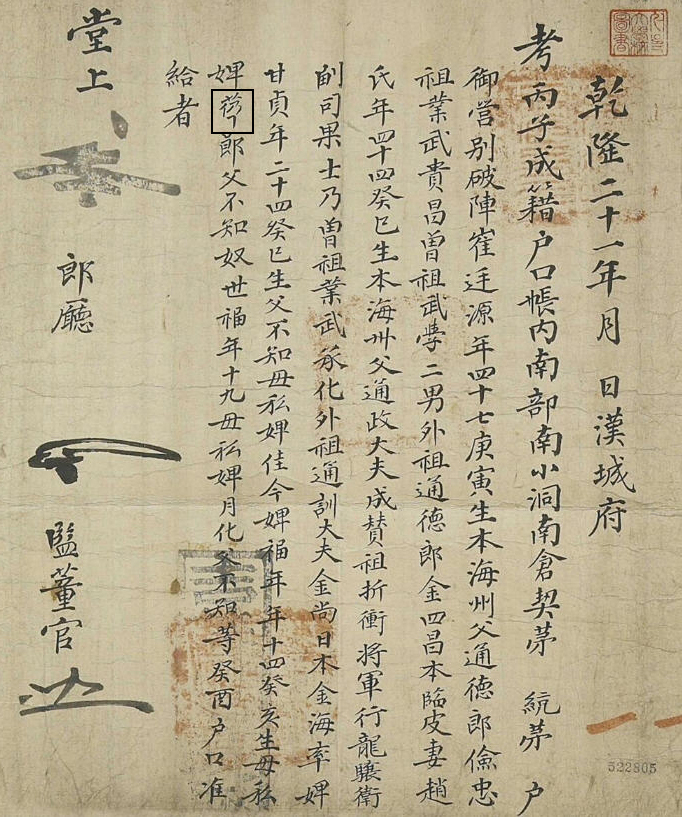 乾隆二十一年月 日漢城府
考丙子成籍户口帳內南部南小洞南倉契苐 統苐 户
御營別破陣崔廷源年四十七庚寅生本海州父通德郎儉忠
祖業武貴昌曽祖武學二男外祖通德郎金四昌本臨皮妻趙
氏年四十四癸巳生本海州父通政大夫成賛祖折衝將軍行龍驤衛
副司果士乃曽祖業武承化外祖通訓大夫金尚日本金海率婢
甘貞年二十四癸巳生父不知母私婢佳今婢福年年十四癸亥生母私
婢郎父不知奴世福年十九母私婢月化父不知等癸酉户口准
給者
堂上
郎廳
監董官
圖書
522805